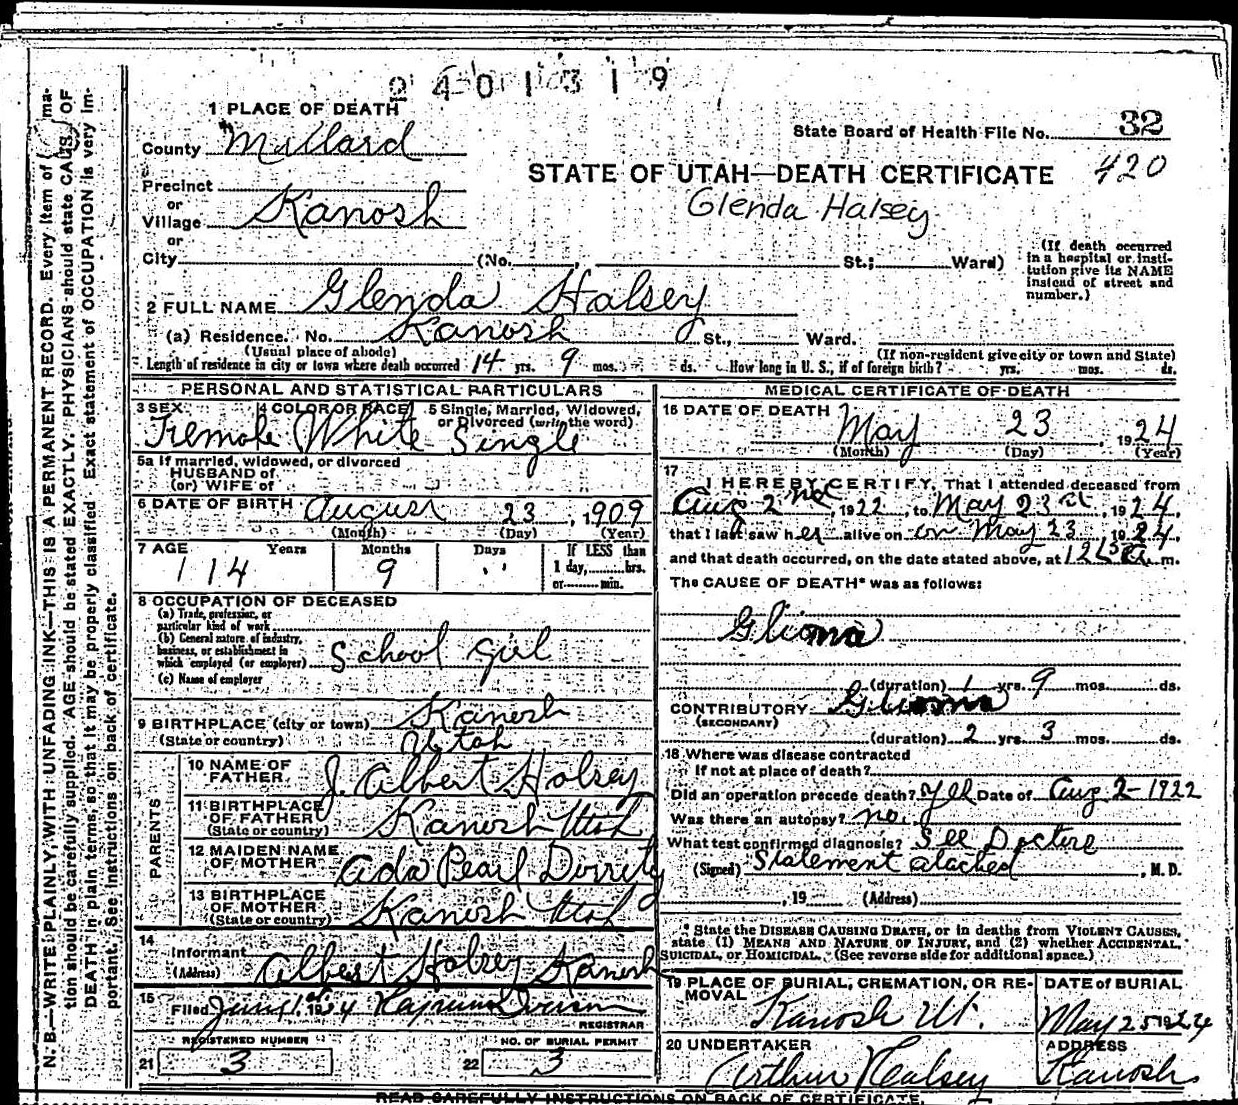 2401319
1 PLACE OF DEATH
County Millard
State Board of Health File No. 32
420
STATE OF UTAH—DEATH CERTIFICATE
Glenda Halsey
Precinct
or
Village Kanosh
or
City (No. , St.; Ward)
(If death occurred in a hospital or institution give its NAME instead of street and number.)
2 FULL NAME Glenda Halsey
(a) Residence. No. Kanosh St., Ward.
(Usual place of abode) (If non-resident give city or town and State)
Length of residence in city or town where death occurred 14 yrs. 9 mos. ds. How long in U. S., if of foreign birth? yrs. mos. ds.
PERSONAL AND STATISTICAL PARTICULARS
3 SEX 4 COLOR OR RACE 5 Single, Married, Widowed, or Divorced (write the word)
Female White Single
5a If married, widowed, or divorced
HUSBAND of
(or) WIFE of
6 DATE OF BIRTH August 23, 1909
(Month) (Day) (Year)
7 AGE Years Months Days If LESS than
14 9 1 day, hrs.
or min.
8 OCCUPATION OF DECEASED
(a) Trade, profession, or
particular kind of work
(b) General nature of industry,
business, or establishment in
which employed (or employer) School girl
(c) Name of employer
9 BIRTHPLACE (city or town) Kanosh
(State or country) Utah
PARENTS
10 NAME OF FATHER J. Albert Halsey
11 BIRTHPLACE OF FATHER
(State or country) Kanosh Utah
12 MAIDEN NAME OF MOTHER Ada Pearl Dorrity
13 BIRTHPLACE OF MOTHER
(State or country) Kanosh Utah
14
Informant Albert Halsey
(Address) Kanosh
15
Filed 
REGISTRAR
REGISTERED NUMBER NO. OF BURIAL PERMIT
21 3 22 3
MEDICAL CERTIFICATE OF DEATH
16 DATE OF DEATH May 23, 1924
(Month) (Day) (Year)
17 I HEREBY CERTIFY, That I attended deceased from
Aug 2nd, 1922, to May 23, 1924,
that I last saw her alive on May 23 1924,
and that death occurred, on the date stated above, at m.
The CAUSE OF DEATH* was as follows:
Glioma
(duration) 1 yrs. 9 mos. ds.
CONTRIBUTORY Glioma
(SECONDARY)
(duration) 2 yrs. 3 mos. ds.
18 Where was disease contracted
if not at place of death?
Did an operation precede death? yes Date of Aug. 2-1922
Was there an autopsy? no.
What test confirmed diagnosis? See Doctors
(Signed) Statement atached, M. D.
, 19 (Address)
* State the DISEASE CAUSING DEATH, or in deaths from VIOLENT CAUSES,
state (1) MEANS AND NATURE OF INJURY, and (2) whether ACCIDENTAL,
SUICIDAL, or HOMICIDAL. (See reverse side for additional space.)
19 PLACE OF BURIAL, CREMATION, OR REMOVAL DATE of BURIAL
Kanosh Ut. May 25 1924
20 UNDERTAKER ADDRESS
Arthur Halsey Kanosh
READ CAREFULLY INSTRUCTIONS ON BACK OF CERTIFICATE.
N. B.—WRITE PLAINLY, WITH UNFADING INK—THIS IS A PERMANENT RECORD. Every item of information should be carefully supplied. AGE should be stated EXACTLY. PHYSICIANS should state CAUSE OF DEATH in plain terms, so that it may be properly classified. Exact statement of OCCUPATION is very important. See instructions on back of certificate.